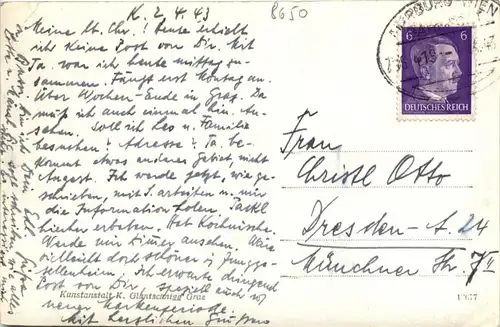 K. 2.4.43
8650
Meine lb. Chr.! Heute erhielt
ich keine Post von Dir. Mit
Ta. war ich heute mittag zu-
sammen. Fängt erst Montag an.
Über Wochen-Ende in Graz. Da
muß ich auch einmal hin. An-
sehen. Soll ich Les u. Familie
besuchen? Adresse? Ta. be-
kommt etwas anderes Gebiet, nicht
Angest. Ich werde jetzt, wie ge-
schrieben, mit S. arbeiten u. mir
die Information holen.
hierher erbeten. Hat Kochnische.
Werde mir Zimmer ansehen. Wäre
vielleicht doch schöner als Jungge-
sellenheim. Ich erwarte dringend
Post von Dir.
neuer Kartenperiode
Mit herzlichen Grüßen
6 6
DEUTSCHES REICH
WIEN
Frau
Christl Otto
Dresden-A. 24
Münchner Str. 7 II
Kunstanstalt K. Graz